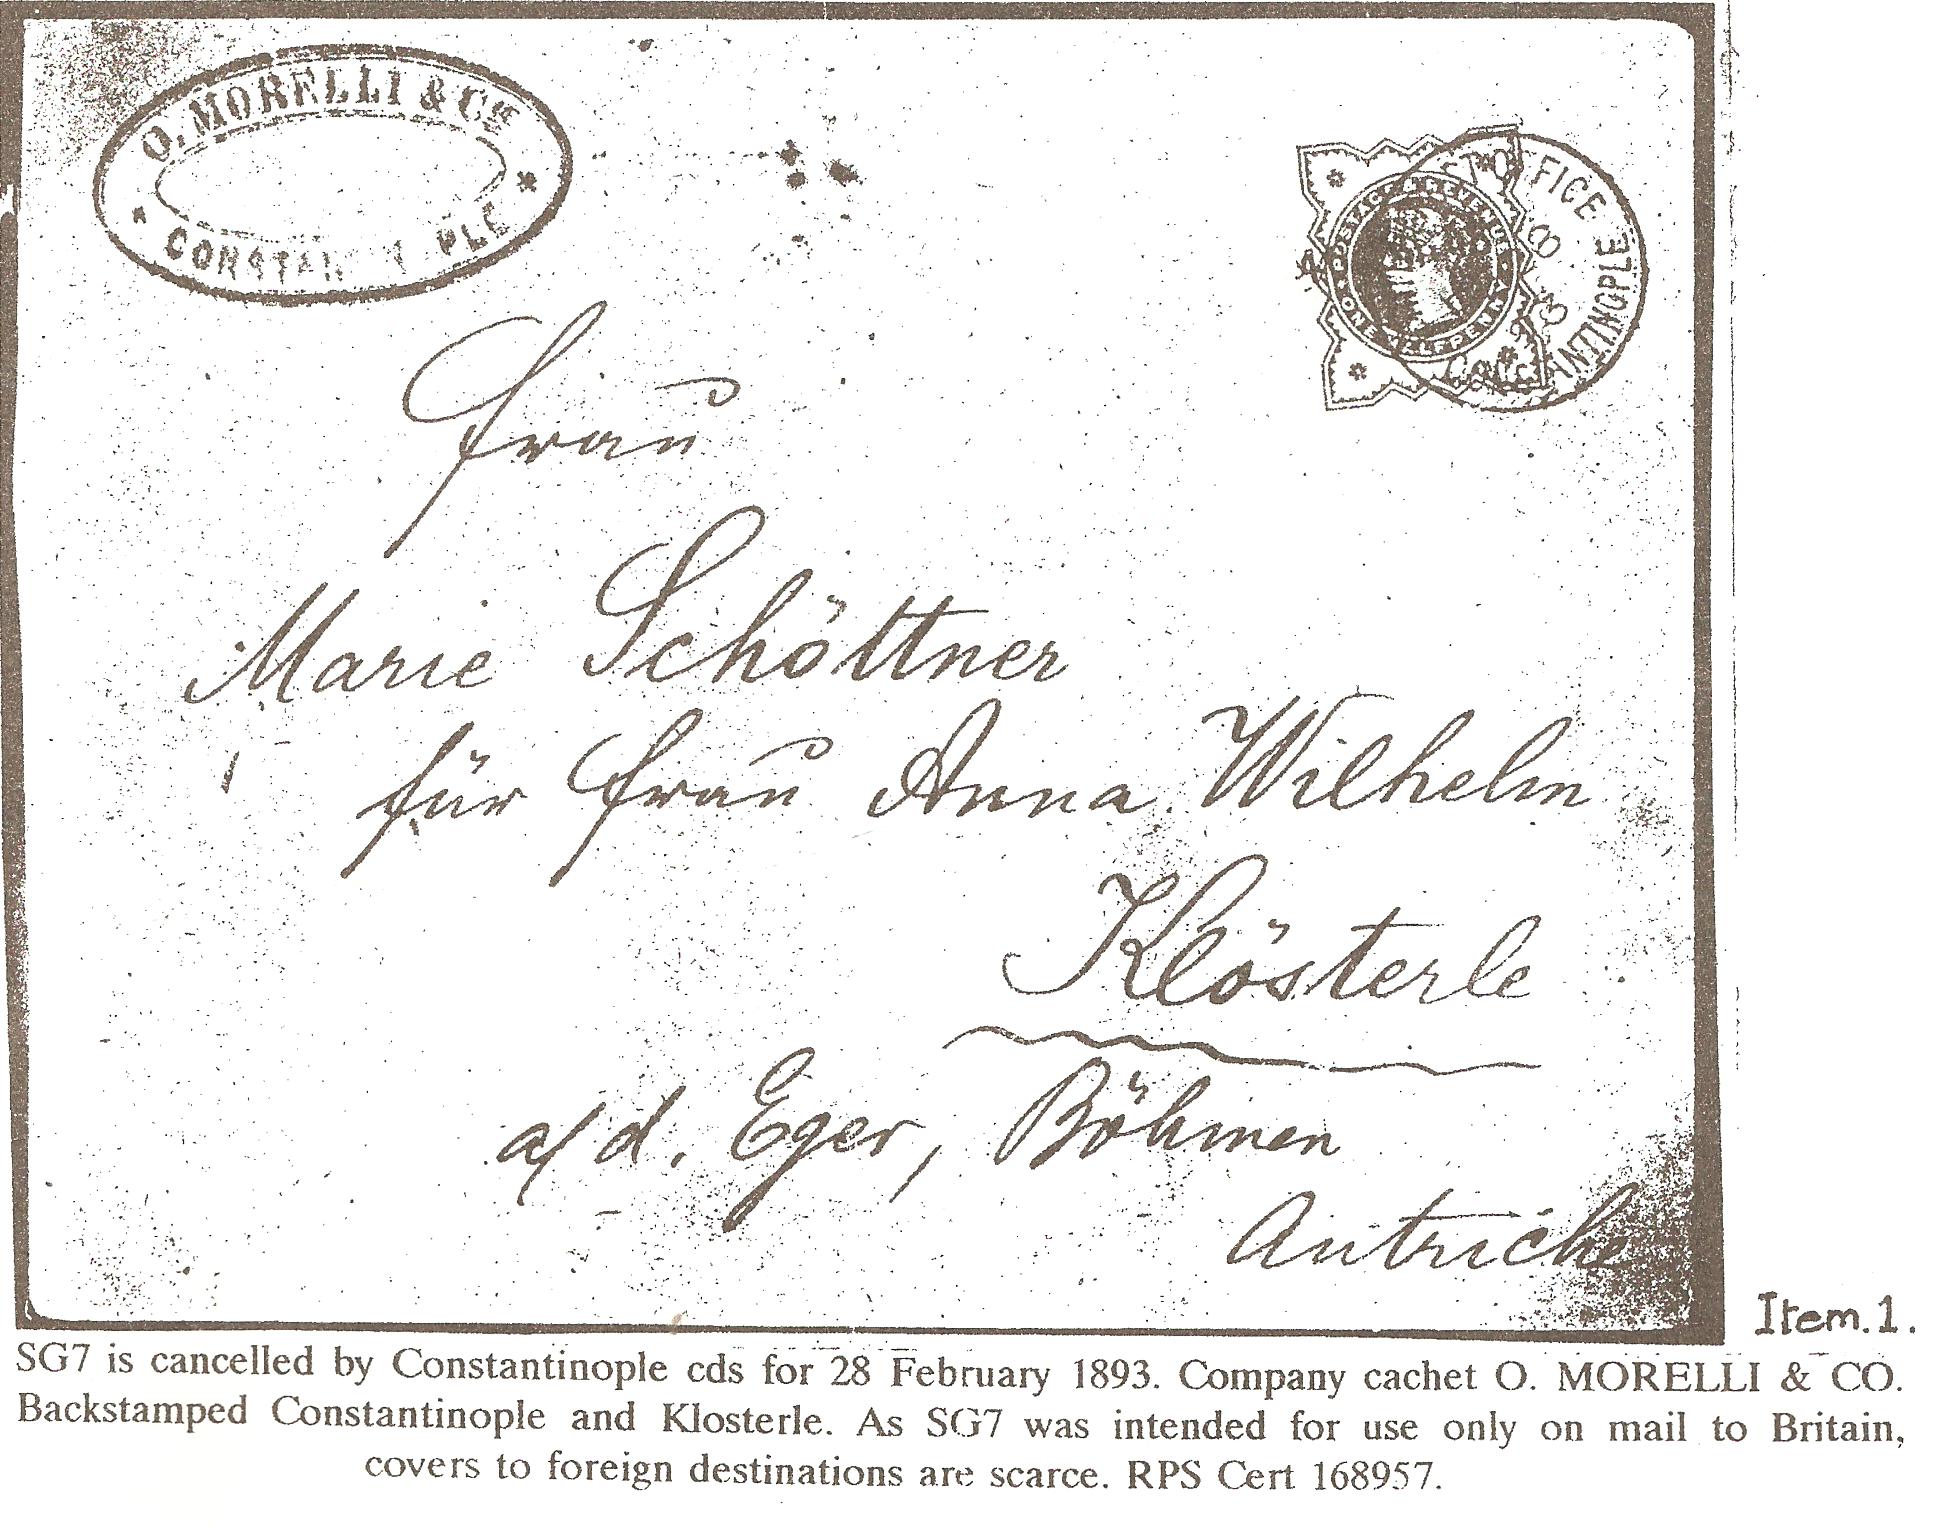 O. MORELLI & CIE
CONSTAN PLE
POSTAGE & REVENUE
ONE HALFPENNY
POST OFFICE
CONSTANTINOPLE
Frau
Marie Schöttner
für Frau Anna Wilhelm
Klösterle
a/d. Eger, Böhmen
Autriche
Item.1.
SG7 is cancelled by Constantinople cds for 28 February 1893. Company cachet O. MORELLI & CO.
Backstamped Constantinople and Klosterle. As SG7 was intended for use only on mail to Britain,
covers to foreign destinations are scarce. RPS Cert 168957.